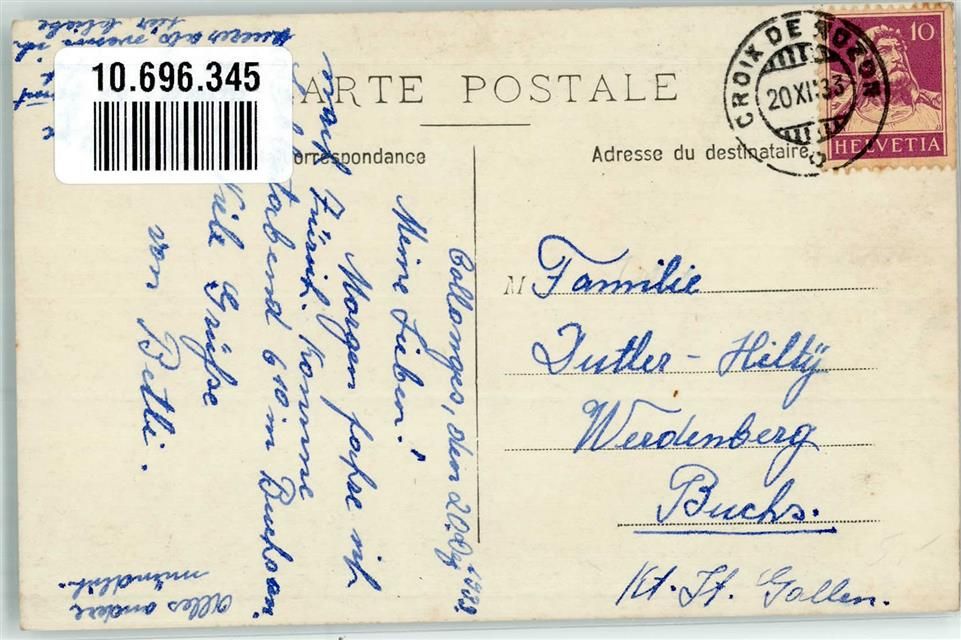 10.696.345
CARTE POSTALE
Correspondance
Adresse du destinataire
CROIX DE ROZON
20 XI 33
10
HELVETIA
Collonges, den 20.
Meine Lieben!
Morgen fahre ich
nach Zürich. Komme
abend 6 10 in Buchs an.
Viele Grüsse
von Betti.
Alles andere
mündlich.
M Familie
Dutler-Hilty
Werdenberg
Buchs.
Kt. St. Gallen.